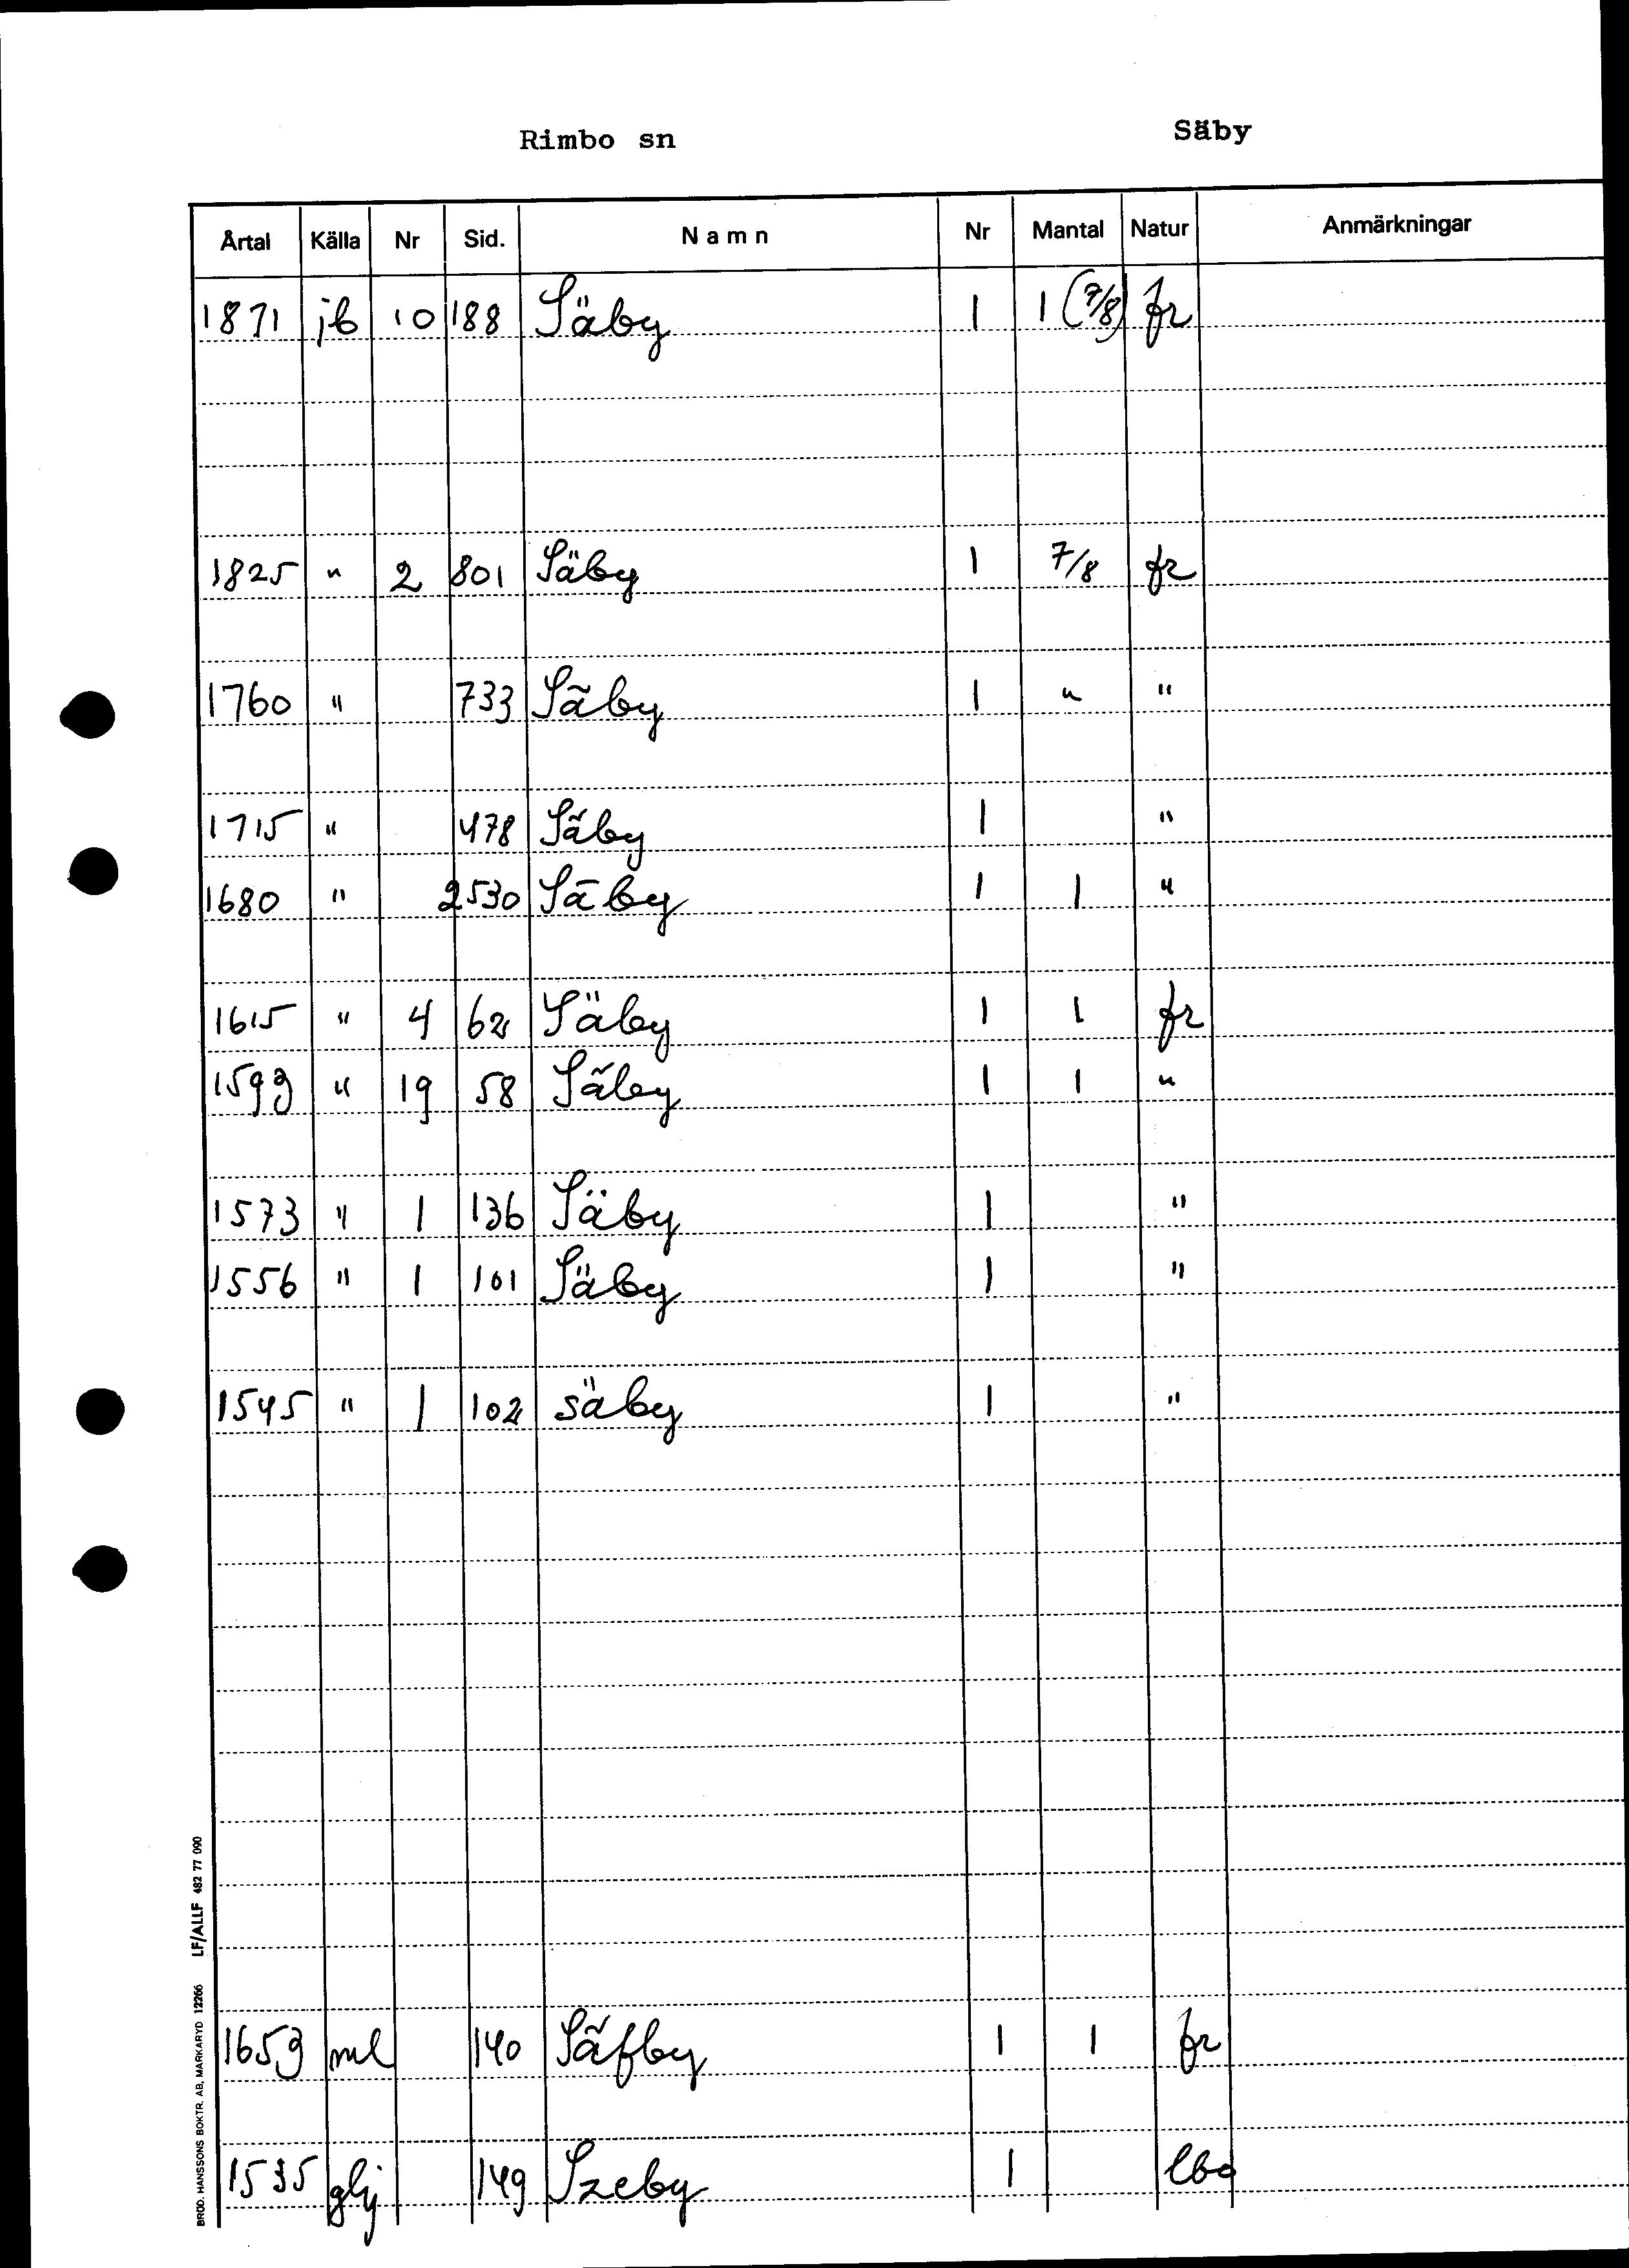 Rimbo sn Säby
Årtal Källa Nr Sid. Namn Nr Mantal Natur Anmärkningar
1871 jb 10 188 Säby 1 1 (7/8) fr
1825 " 2 801 Säby 1 7/8 fr
1760 " 733 Säby 1 " "
1715 " 478 Säby 1 "
1680 " 2530 Säby 1 1 "
1615 " 4 62 Säby 1 1 fr
1593 " 19 58 Säby 1 1 "
1573 " 1 136 Säby 1 "
1556 " 1 101 Säby 1 "
1545 " 1 102 säby 1 "
1653 ml 140 Säfby 1 1 fr
1535 glj 149 Szeby 1
BROD. HANSSONS BOKTR. AB, MARKARYD 12266 LF/ALLF 482 77 090